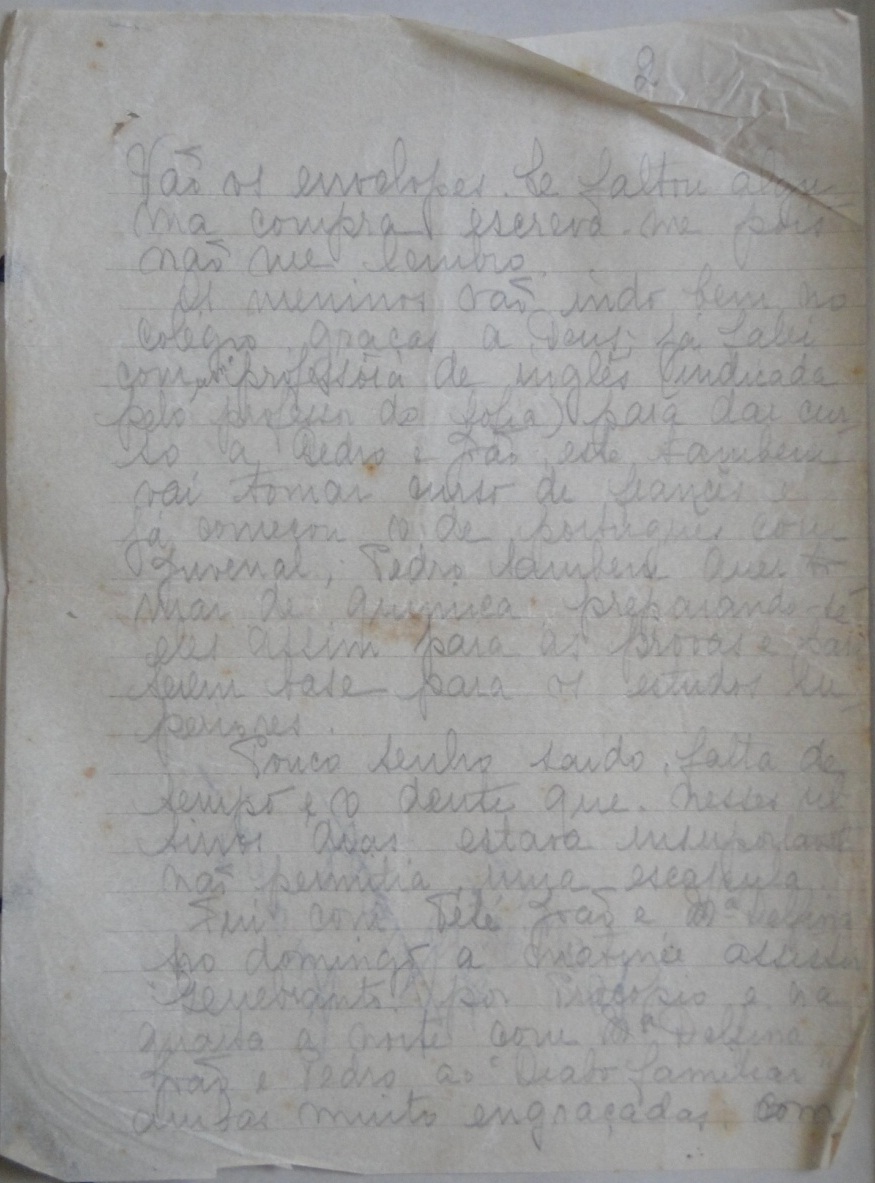 2
Vão os envelopes. Se faltou algu-
ma compra escreva-me pois
não me lembro.
Os meninos vão indo bem no
colégio, graças a Deus; já falei
com professora de inglês (indicada
pelo professor do) para dar cur-
so a Pedro e João, este tambem
vai tomar curso de francês e
já começou o de português com
Juvenal; Pedro tambem quer to-
mar de química preparando-se
eles assim para as provas e para
terem base para os estudos su-
periores.
Pouco tenho saido, falta de
tempo e o dente que nesses
dias estava
não permitia uma escapula.
Fui com Teté João e Dª Delfina
no domingo a matinée assistir
por Procopio e na
quarta a noite com Dª Delfina
João e Pedro ao "Diabo familiar"
ambas muito engraçadas. Com